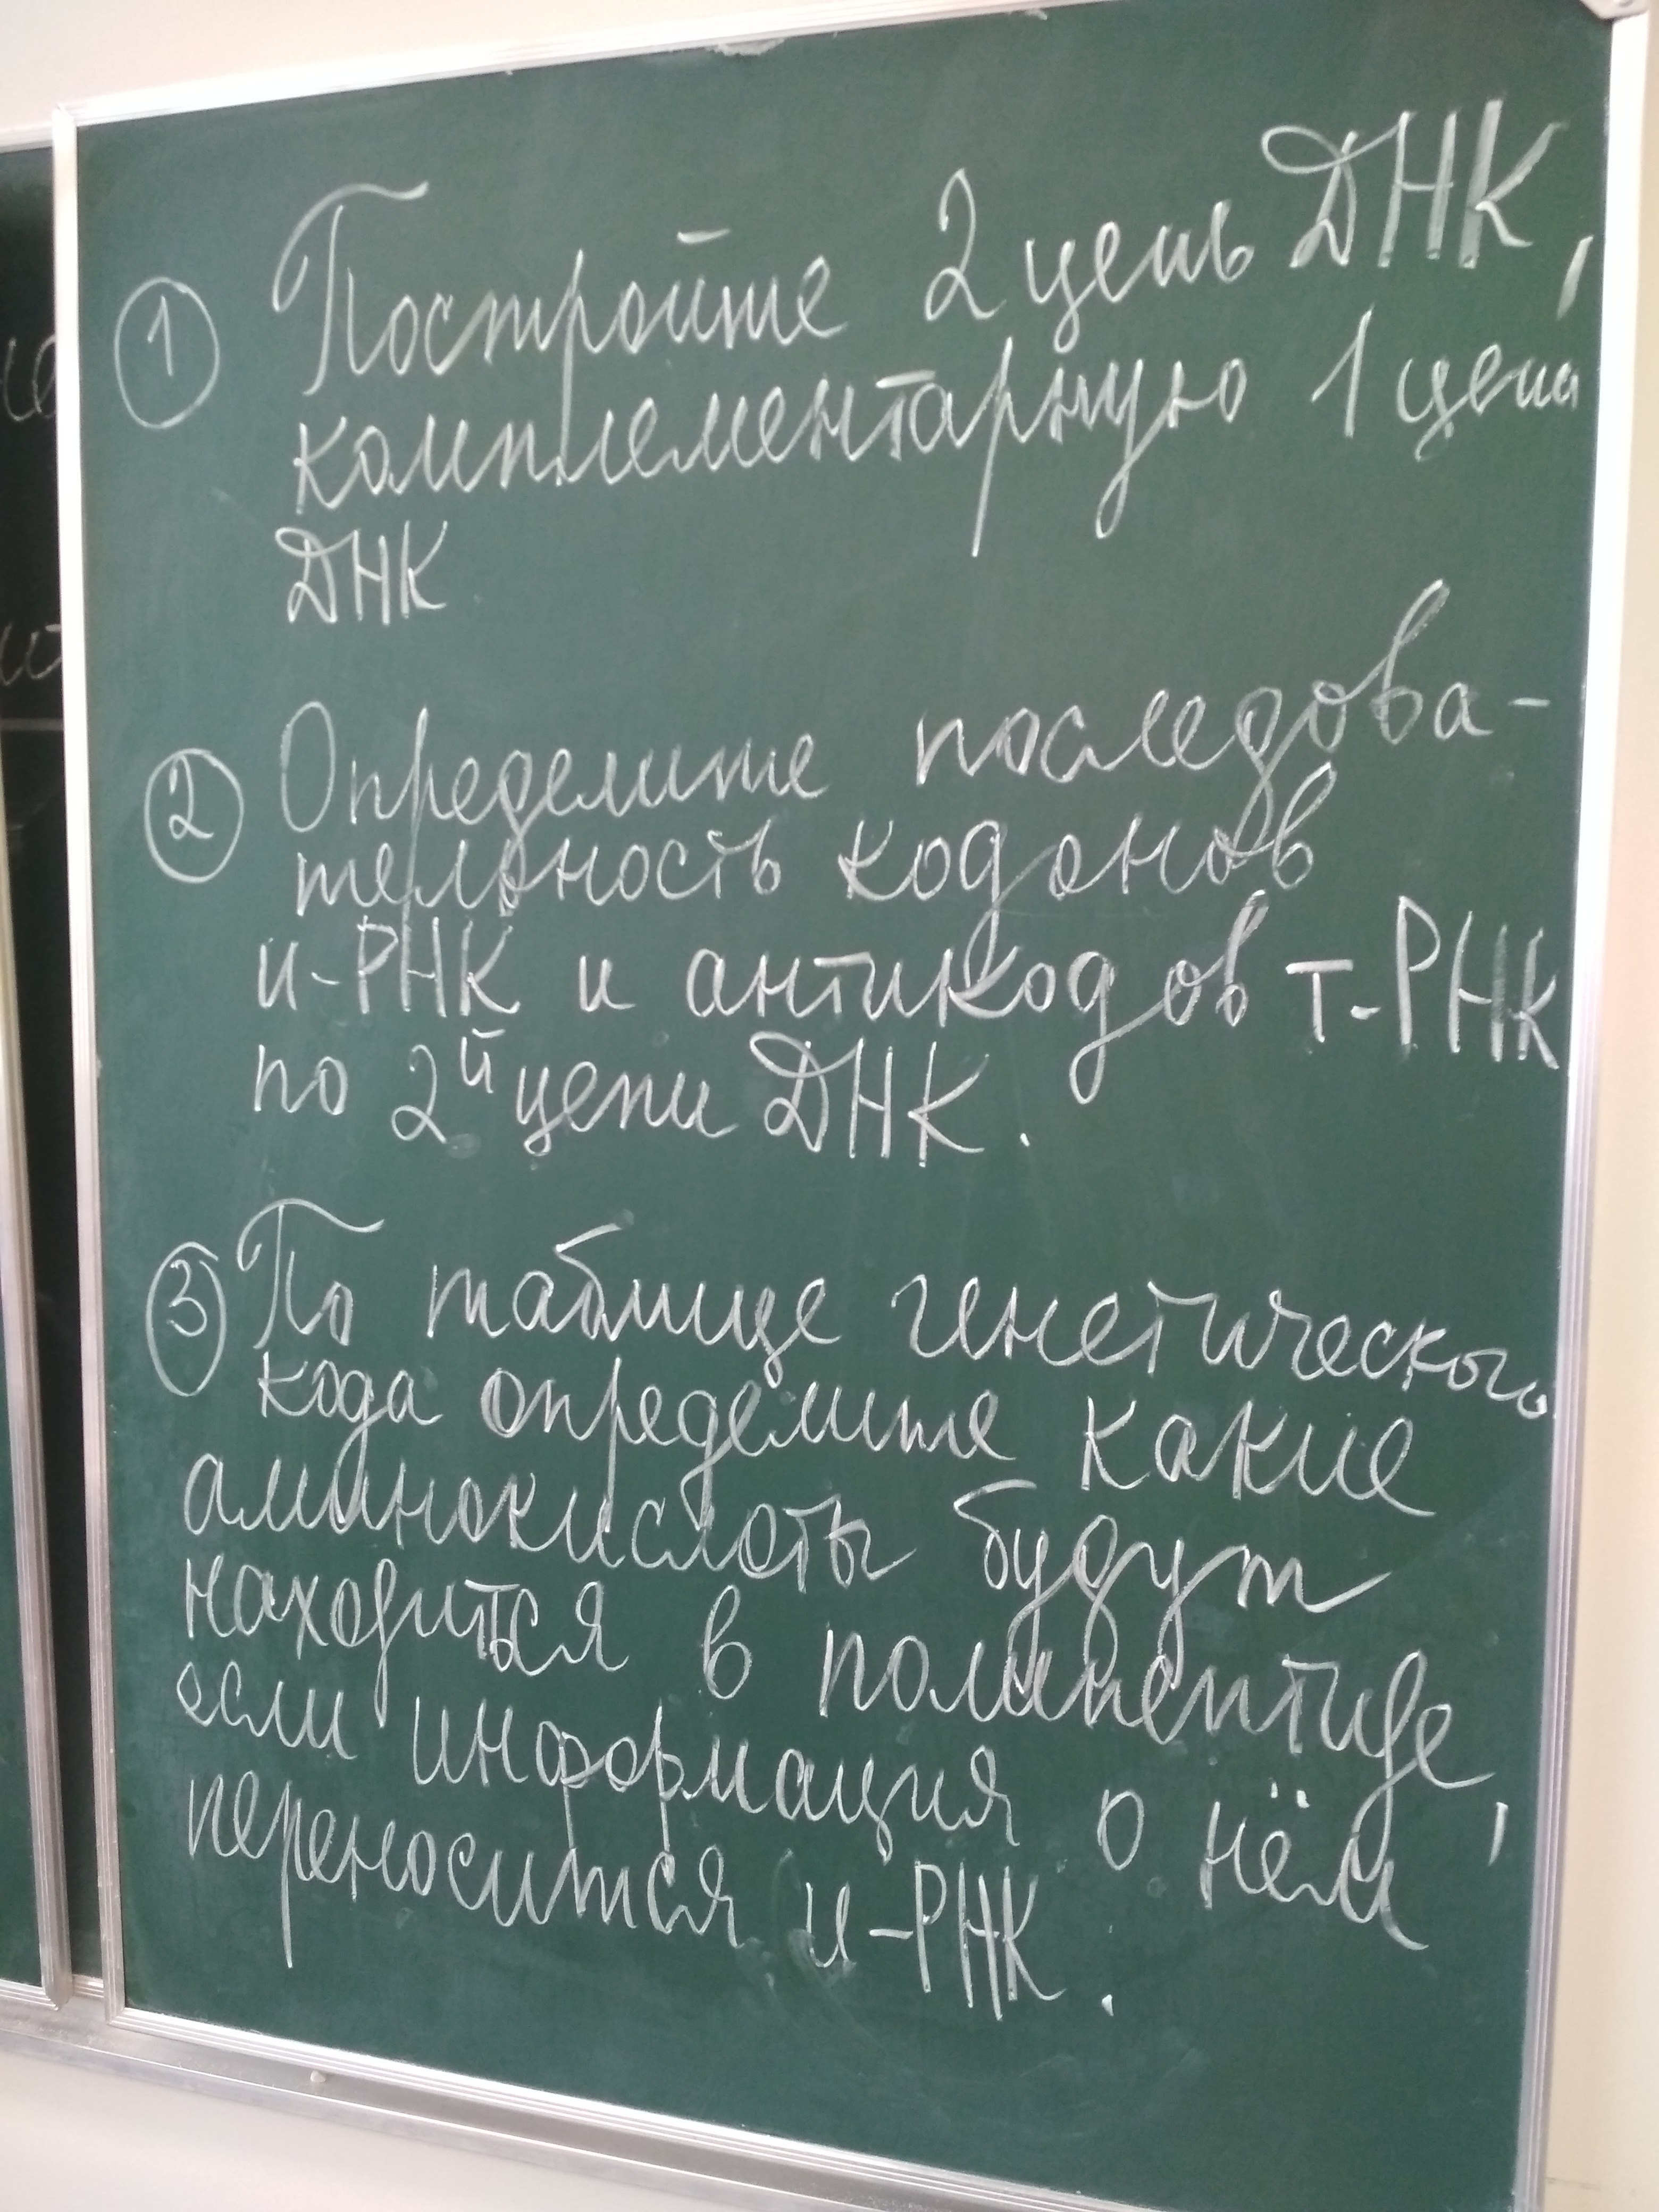 ① Постройте 2 цепь ДНК,
комплементарную 1 цепи
ДНК
② Определите последова-
тельность кодонов
и-РНК и антикодов т-РНК
по 2й цепи ДНК.
③ По таблице генетического
кода определите какие
аминокислоты будут
находится в полипептиде,
если информация о нём
переносится и-РНК.